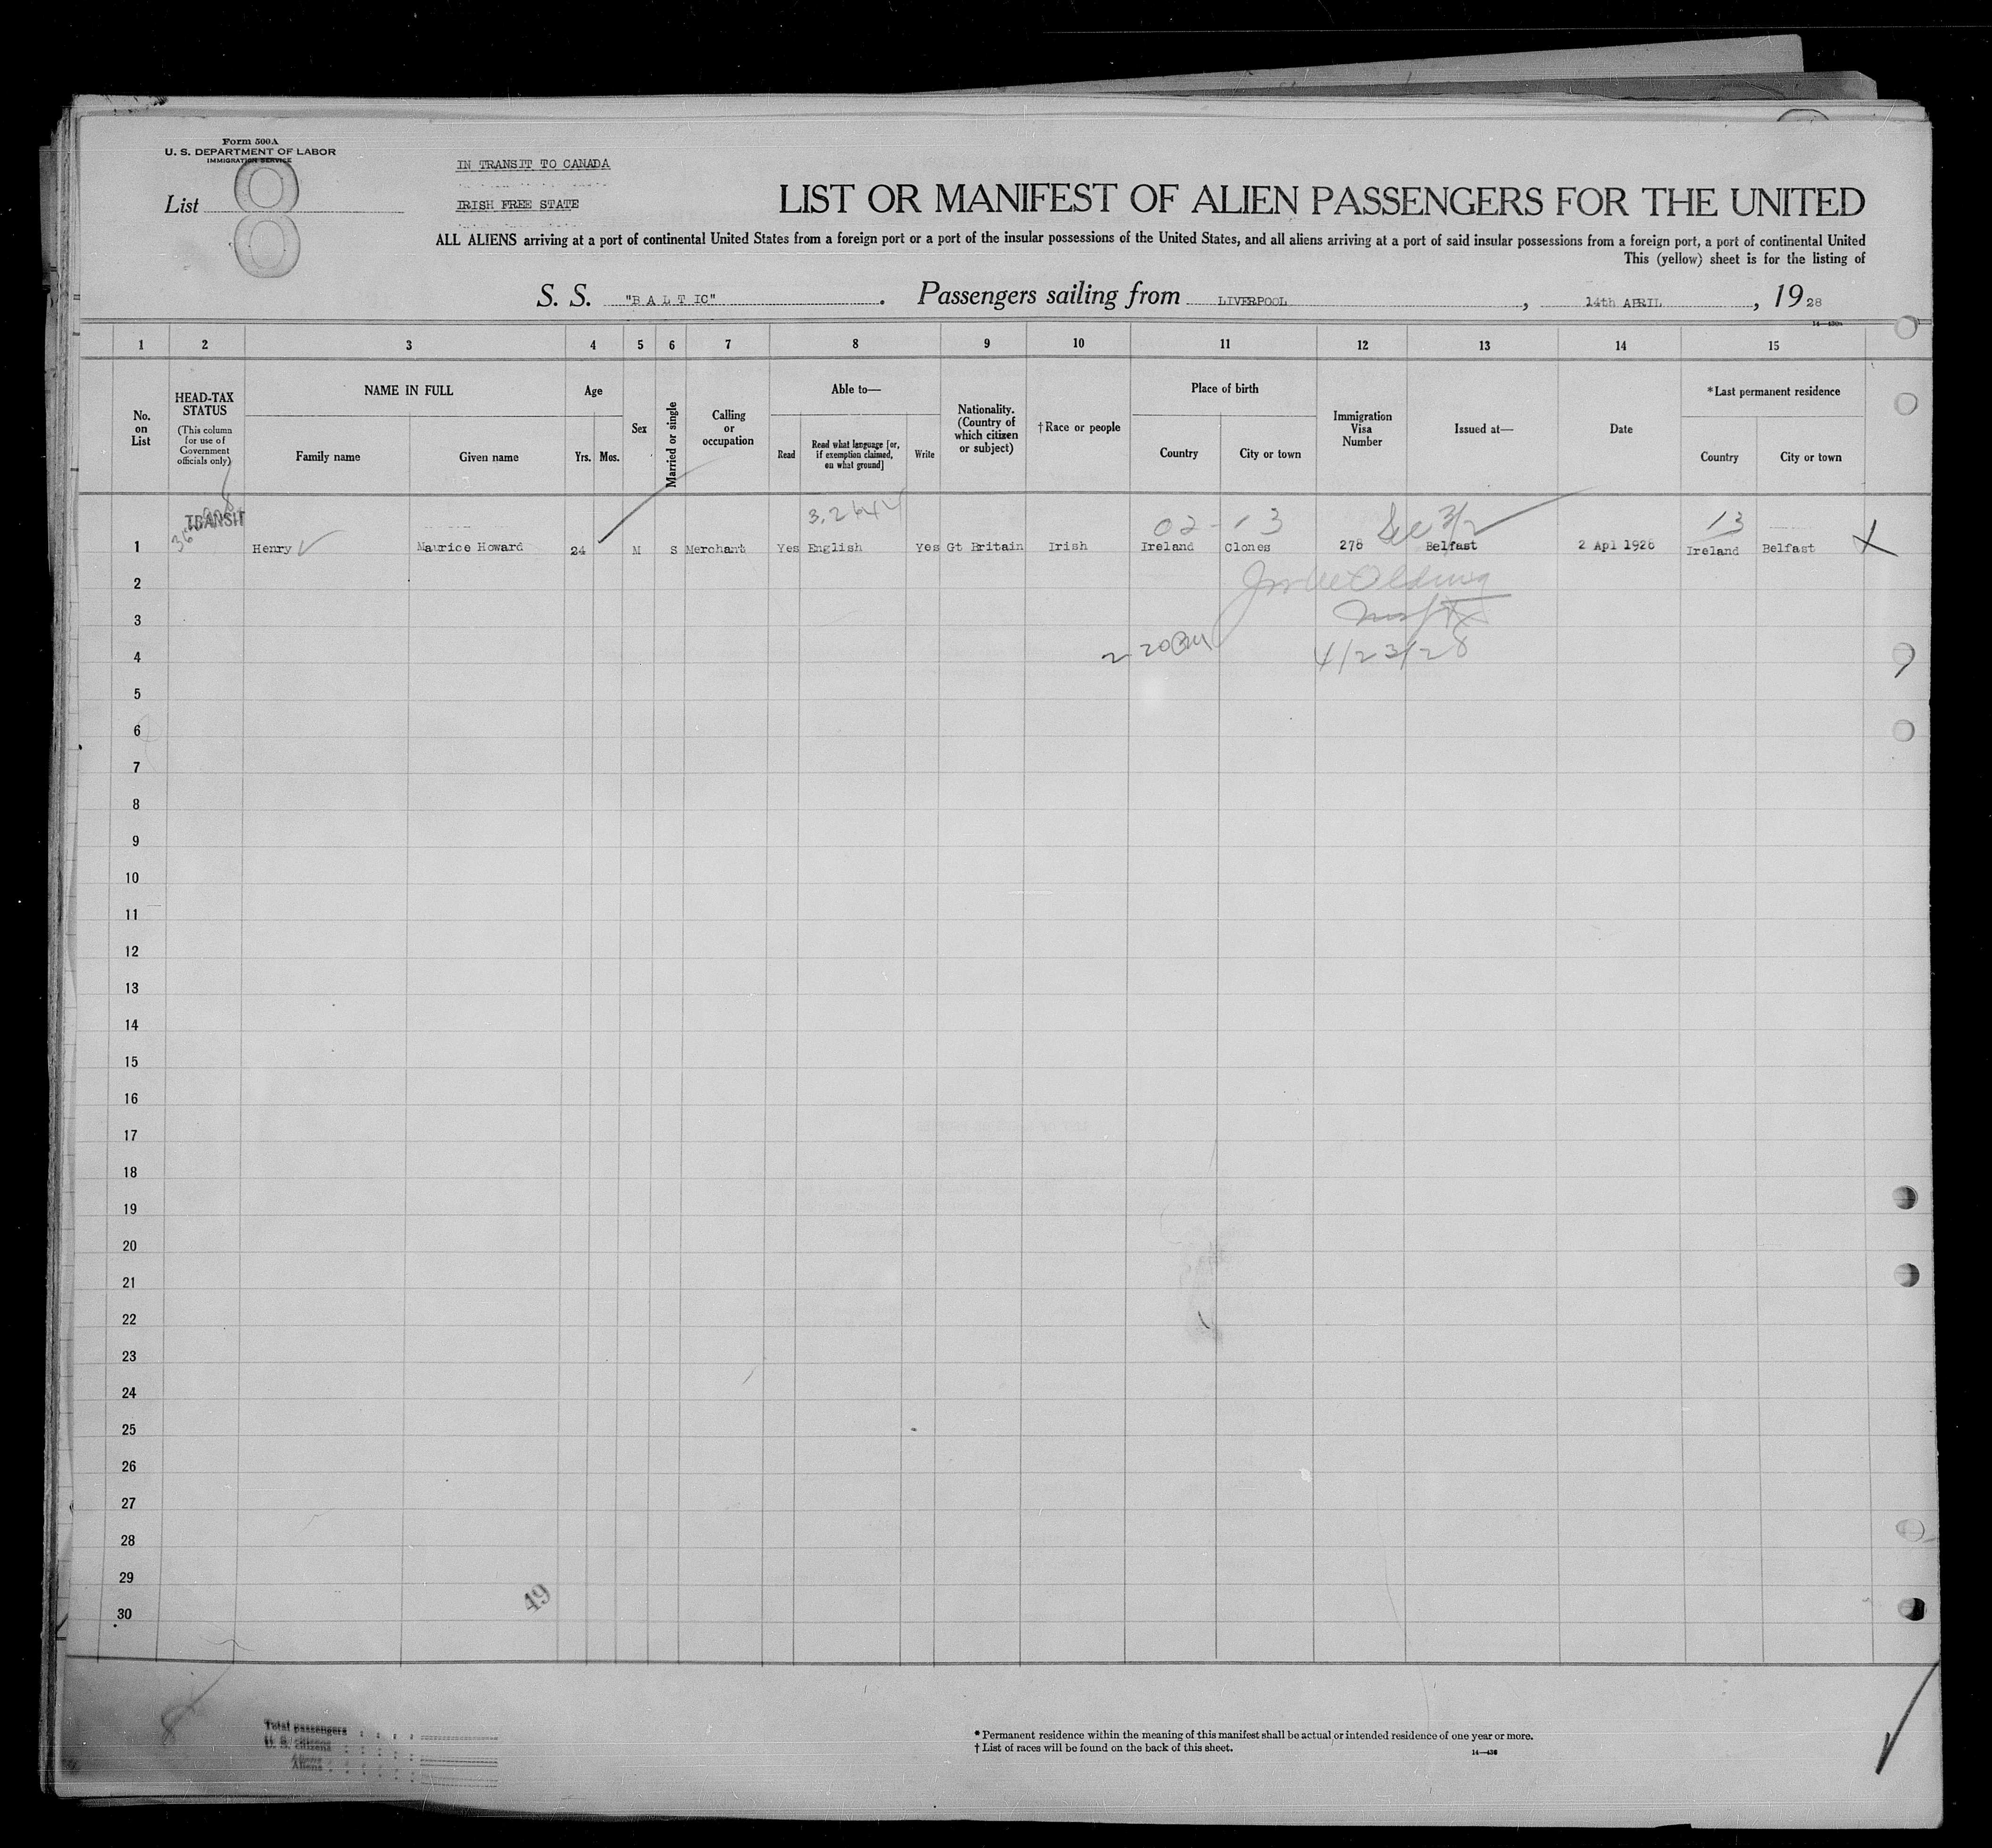 Form 500A
U. S. DEPARTMENT OF LABOR
IMMIGRATION SERVICE
List 8
8
IN TRANSIT TO CANADA
IRISH FREE STATE
LIST OR MANIFEST OF ALIEN PASSENGERS FOR THE UNITED
ALL ALIENS arriving at a port of continental United States from a foreign port or a port of the insular possessions of the United States, and all aliens arriving at a port of said insular possessions from a foreign port, a port of continental United
This (yellow) sheet is for the listing of
S. S. "B A L T IC". Passengers sailing from LIVERPOOL, 14th APRIL, 1928
1 2 3 4 5 6 7 8 9 10 11 12 13 14 15
No. on List
HEAD-TAX STATUS (This column for use of Government officials only)
NAME IN FULL
Family name
Given name
Age
Yrs. Mos.
Sex
Married or single
Calling or occupation
Able to—
Read
Read what language [or, if exemption claimed, on what ground]
Write
Nationality. (Country of which citizen or subject)
†Race or people
Place of birth
Country
City or town
Immigration Visa Number
Issued at—
Date
*Last permanent residence
Country
City or town
TRANSIT
02-13
13
1 Henry Maurice Howard 24 M S Merchant Yes English Yes Gt Britain Irish Ireland Clones 278 Belfast 2 Apl 1928 Ireland Belfast X
2
3
4 4/23/28
5
6
7
8
9
10
11
12
13
14
15
16
17
18
19
20
21
22
23
24
25
26
27
28
29
30
49
8
Total passengers
U. S. citizens
Aliens
* Permanent residence within the meaning of this manifest shall be actual or intended residence of one year or more.
† List of races will be found on the back of this sheet.